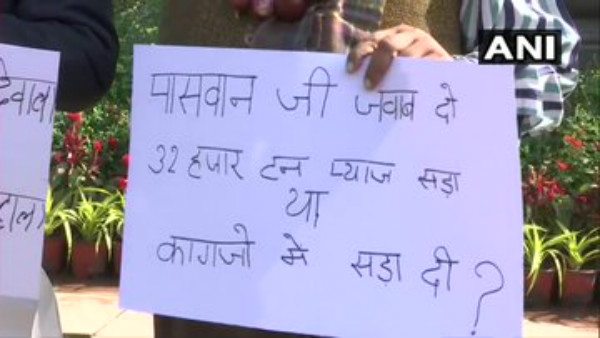 ANI
पासवान जी जवाब दो
32 हजार टन प्याज सड़ा
या
कागजो मे सड़ा दी ?